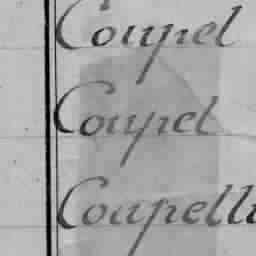 Coupel
Coupel
Coupelli